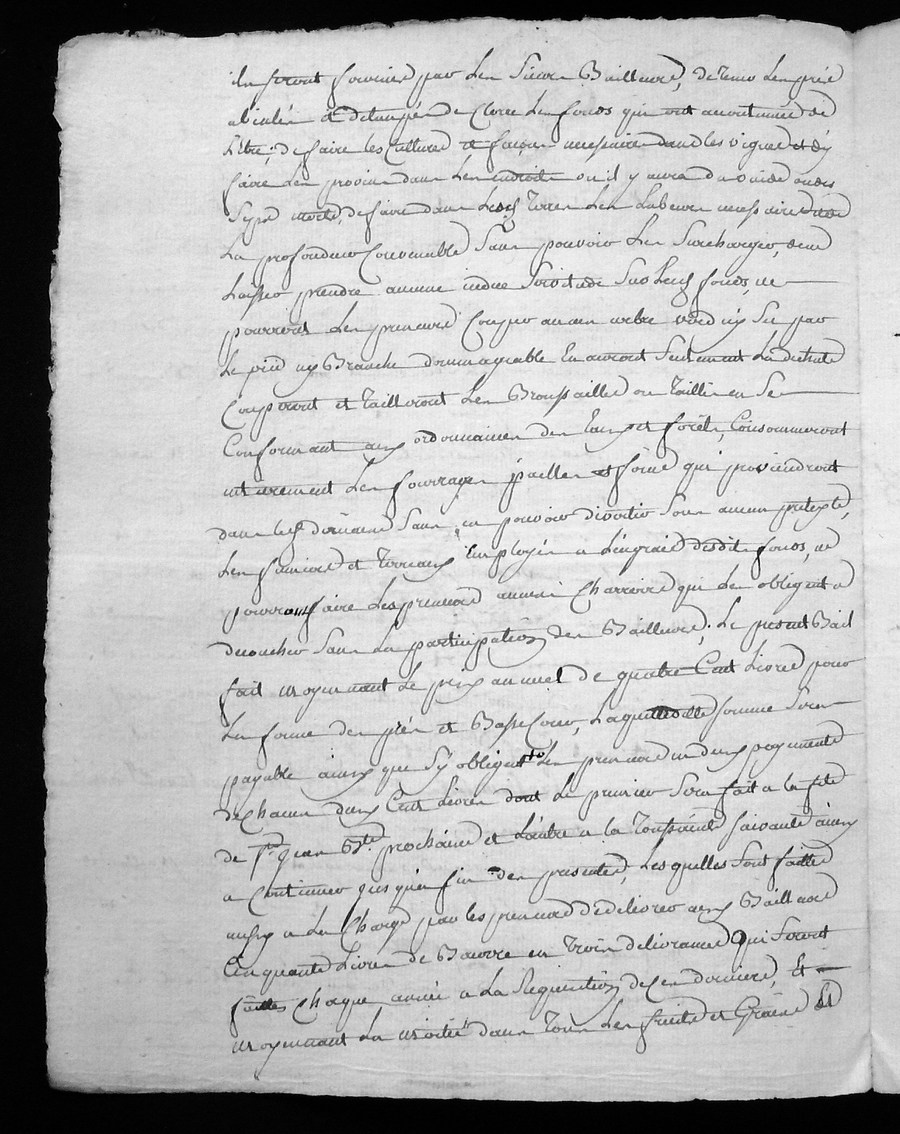 ils seront fournies par les sieurs Bailleurs, de tenir les prés
abialés et de bien clore les fonds qui ont accoutumé de
L'être, de faire les cultures et façons necessaires dans les vignes et d'y
faire des provins dans les endroits ou il y aura du vuide ou des
seps morts, de faire dans lesd. terres les labeurs necessaires
La profondeur Convenable sans pouvoir les surcharger, de ne
Laisser prendre aucune indue servitude sur lesd. fonds, ne
pourront les preneurs Couper aucun arbre verd ny sec par
Le pied ny Branche dommageable En auront seulement la
Couperont et tailleront les Broussailles ou taillis en se
Conformant aux ordonnances des Eaux et forêts, Consommeront
entierement les fourrages pailles et foins qui proviendront
dans lesd. domaines sans en pouvoir divertir sous aucun pretexte,
Les fumiers et terreaux Employés a L'engrais desdits fonds, ne
pourront faire Les preneurs aucuns Charrois qui les obligent a
decoucher sans La participation des Bailleurs; Le present Bail
fait moyennant Le prix annuel de quatre Cent Livres pour
La ferme des prés et Basse Cour, Laquelle ditte somme sera
payable ainsy que s'y obligent les preneurs en deux payements
de chacun deux Cent Livres dont Le premier sera fait a la fête
de St. Jean Bte. prochaine et L'autre a la Toussaint suivante ainsy
a Continuer jusqu'en fin des presentes, Lesquelles sont faittes
aussy a La Charge par les preneurs de delivrer aux Bailleurs
Cinquante Livres de Beurre en trois delivrances qui seront
faittes chaque année a La Requisition de ces derniers, Et
moyennant La moitié dans tous les fruits et Grains